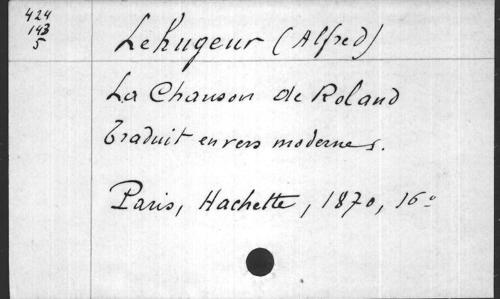 424
143
5
Lehugeur (Alfred)
La Chanson de Roland
Traduit en vers modernes.
Paris, Hachette, 1870, 16º